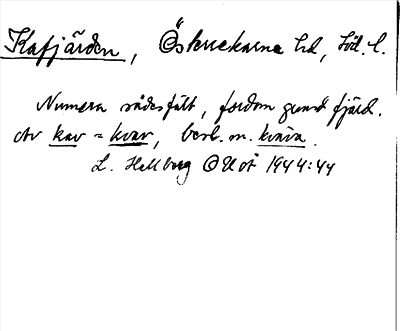 Kafjärden, Österrekarne hd, Söd. l.
Numera sädesfält, fordom grund fjärd.
Av kav = kvav, besl. m. kvävа.
L. Hellberg OUoÅ 1944:44